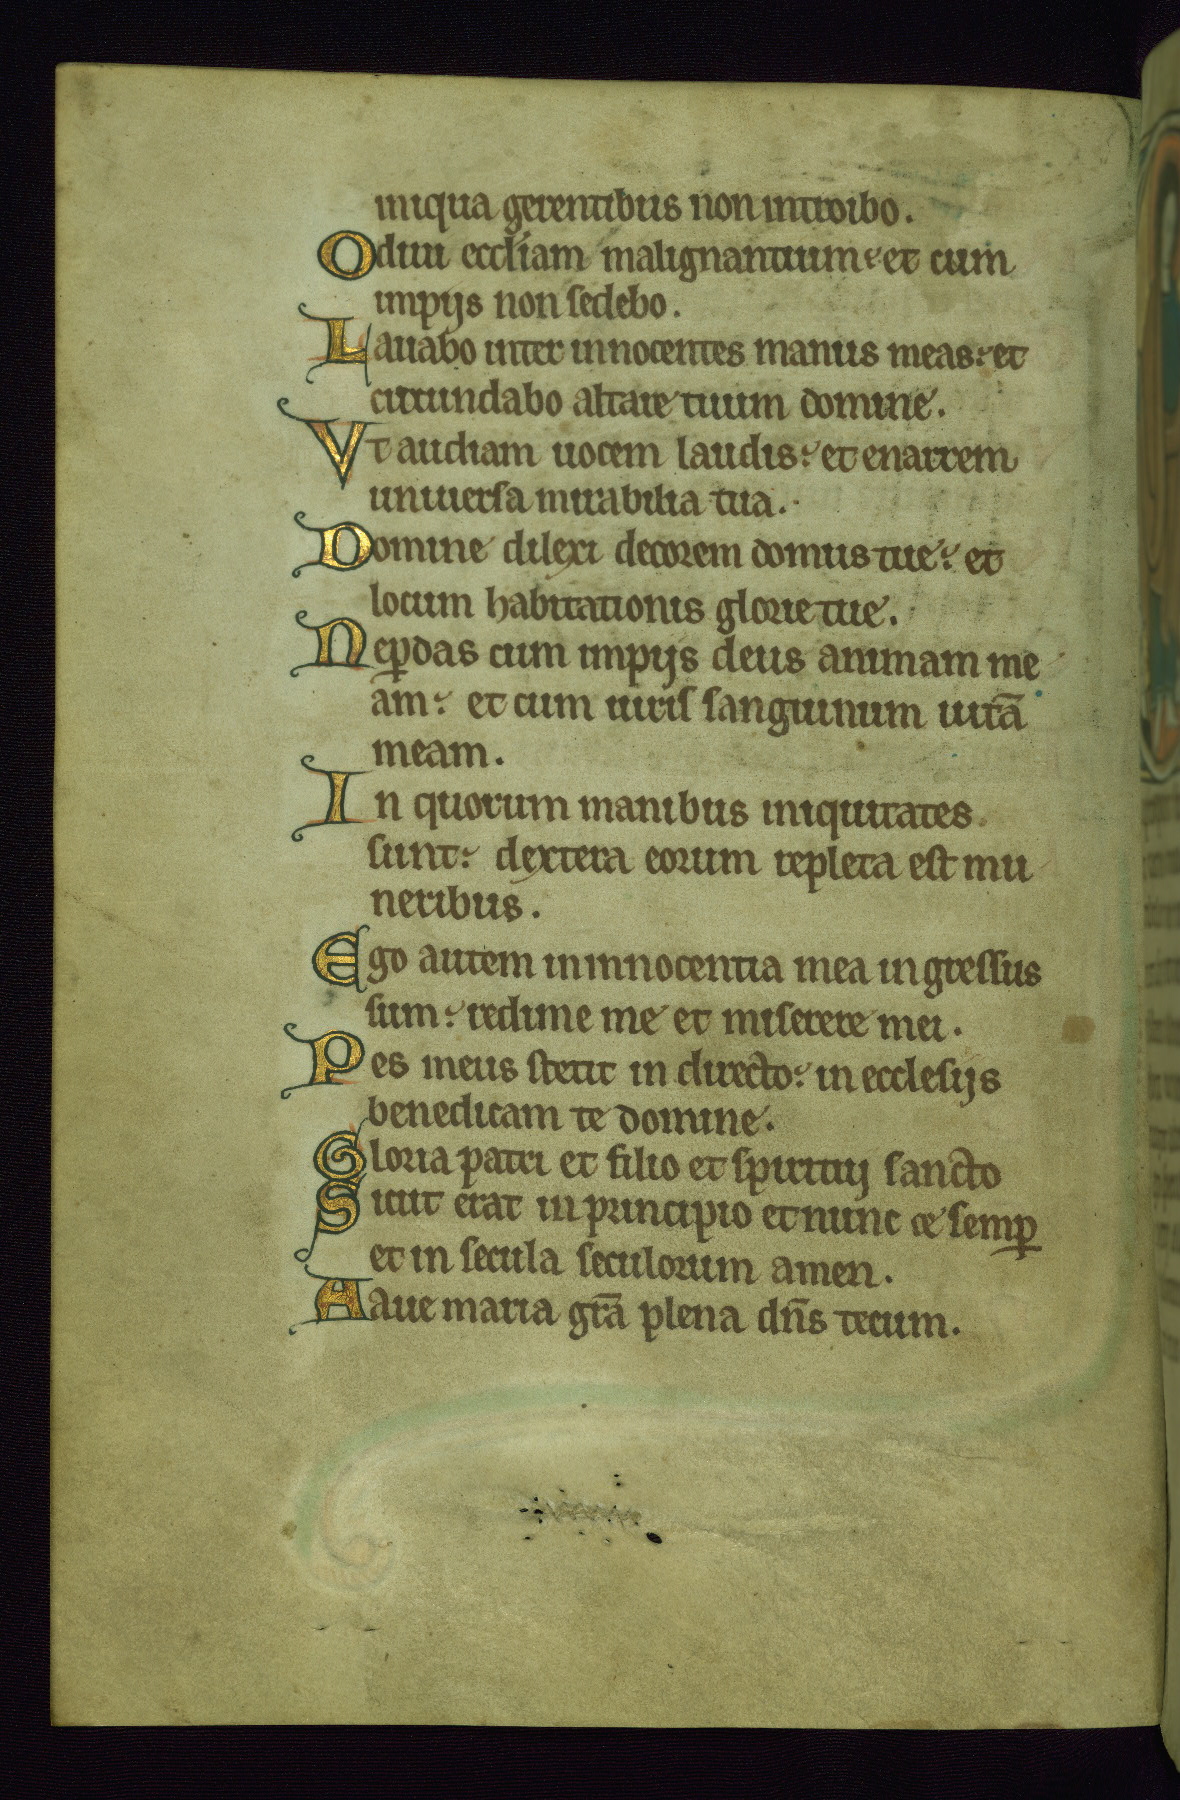 iniqua gerentibus non introibo.
Odiui eccl̄iam malignantium: et cum
impijs non sedebo.
Lauabo inter innocentes manus meas: et
circundabo altare tuum domine.
Vt audiam uocem laudis: et enarrem
uniuersa mirabilia tua.
Domine dilexi decorem domus tue: et
locum habitationis glorie tue.
Ne ꝑdas cum impijs deus animam me
am: et cum uiris sanguinum uitā
meam.
In quorum manibus iniquitates
sunt: dextera eorum repleta est mu
neribus.
Ego autem in innocentia mea ingressus
sum: redime me et miserere mei.
Pes meus stetit in directo: in ecclesijs
benedicam te domine.
Gloria patri et filio et spiritui sancto
Sicut erat in principio et nunc et semꝑ
et in secula seculorum amen.
Aaue maria grā plena dn̄s tecum.